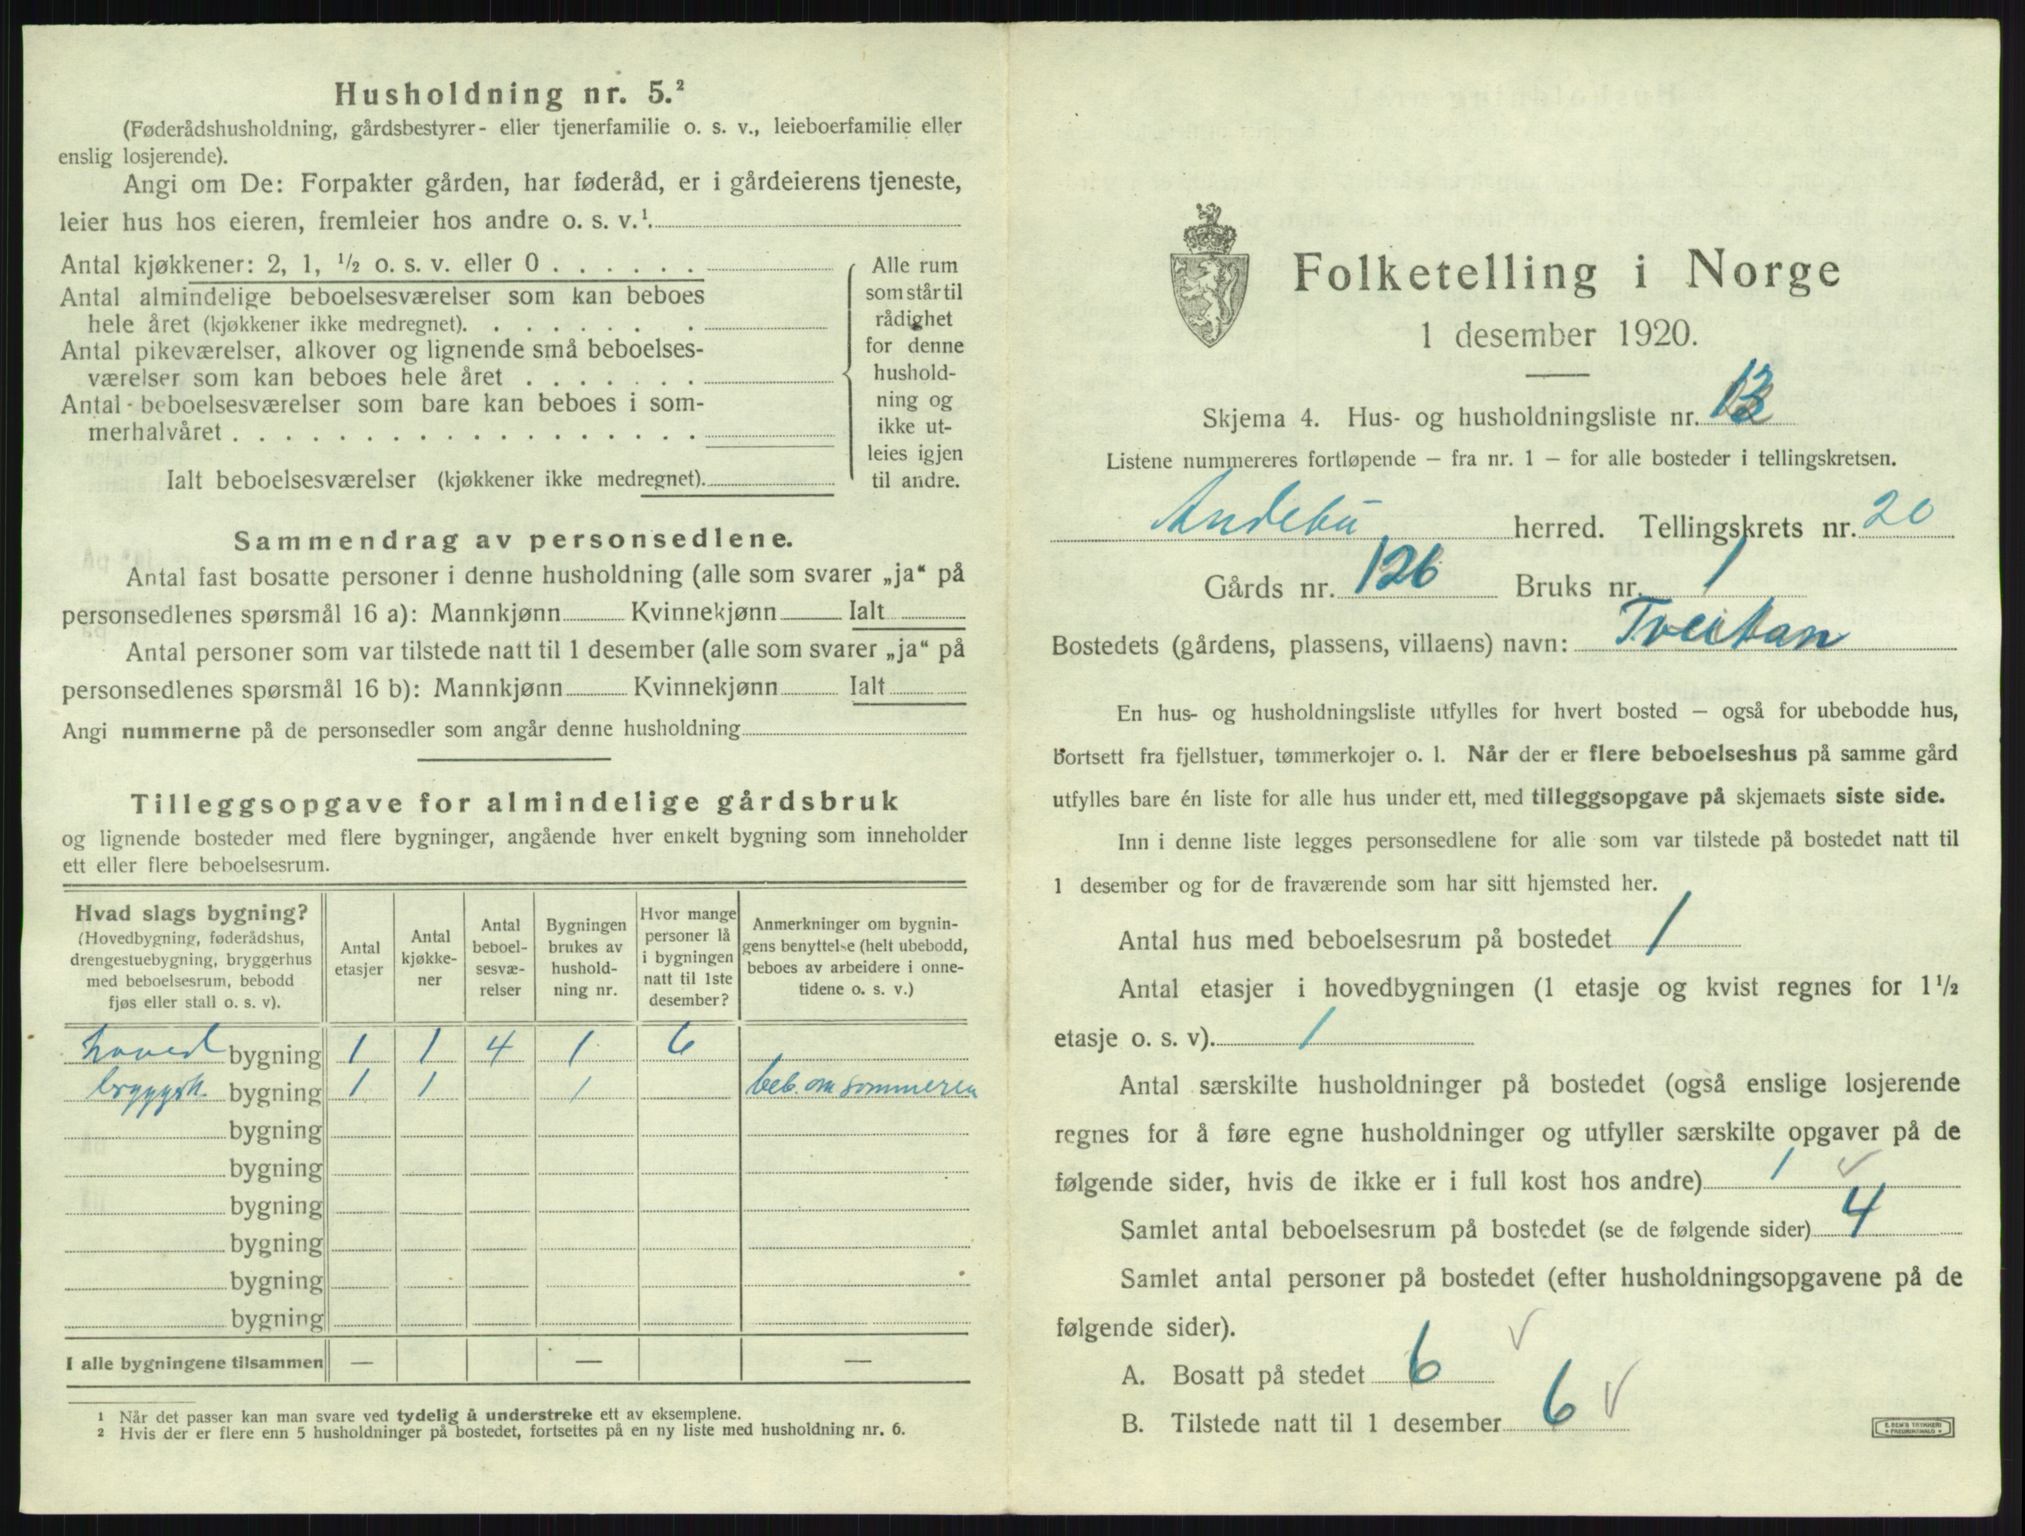 Husholdning nr. 5.²
(Føderådshusholdning, gårdsbestyrer- eller tjenerfamilie o. s. v., leieboerfamilie eller
enslig losjerende).
Angi om De: Forpakter gården, har føderåd, er i gårdeierens tjeneste,
leier hus hos eieren, fremleier hos andre o. s. v.¹.
Antal kjøkkener: 2, 1, ½ o. s. v. eller 0 . . . . . .
Antal almindelige beboelsesværelser som kan beboes
hele året (kjøkkener ikke medregnet). . . . . . . .
Antal pikeværelser, alkover og lignende små beboelses-
værelser som kan beboes hele året . . . . . . .
Antal beboelsesværelser som bare kan beboes i som-
merhalvåret . . . . . . . . . . . . . . . . . .
Ialt beboelsesværelser (kjøkkener ikke medregnet).
Alle rum
som står til
rådighet
for denne
hushold-
ning og
ikke ut-
leies igjen
til andre.
Sammendrag av personsedlene.
Antal fast bosatte personer i denne husholdning (alle som svarer „ja“ på
personsedlenes spørsmål 16 a): Mannkjønn Kvinnekjønn Ialt
Antal personer som var tilstede natt til 1 desember (alle som svarer „ja“ på
personsedlenes spørsmål 16 b): Mannkjønn Kvinnekjønn Ialt
Angi nummerne på de personsedler som angår denne husholdning
Tilleggsopgave for almindelige gårdsbruk
og lignende bosteder med flere bygninger, angående hver enkelt bygning som inneholder
ett eller flere beboelsesrum.
Hvad slags bygning?
(Hovedbygning, føderådshus,
drengestuebygning, bryggerhus
med beboelsesrum, bebodd
fjøs eller stall o. s. v).
Antal
etasjer
Antal
kjøkke-
ner
Antal
beboel-
sesvæ-
relser
Bygningen
brukes av
hushold-
ning nr.
Hvor mange
personer lå
i bygningen
natt til 1ste
desember?
Anmerkninger om bygnin-
gens benyttelse (helt ubebodd,
beboes av arbeidere i onne-
tidene o. s. v.)
hoved bygning 1 1 4 1 6
bryggrh. bygning 1 1 1 beb. om sommeren
bygning
bygning
bygning
bygning
bygning
bygning
I alle bygningene tilsammen — — —
¹ Når det passer kan man svare ved tydelig å understreke ett av eksemplene.
² Hvis der er flere enn 5 husholdninger på bostedet, fortsettes på en ny liste med husholdning nr. 6.
Folketelling i Norge
1 desember 1920.
Skjema 4. Hus- og husholdningsliste nr.
Listene nummereres fortløpende – fra nr. 1 – for alle bosteder i tellingskretsen.
Andebu herred. Tellingskrets nr. 20
Gårds nr. 126 Bruks nr. 1
Bostedets (gårdens, plassens, villaens) navn: Tveitan
En hus- og husholdningsliste utfylles for hvert bosted – også for ubebodde hus,
bortsett fra fjellstuer, tømmerkojer o. l. Når der er flere beboelseshus på samme gård
utfylles bare én liste for alle hus under ett, med tilleggsopgave på skjemaets siste side.
Inn i denne liste legges personsedlene for alle som var tilstede på bostedet natt til
1 desember og for de fraværende som har sitt hjemsted her.
Antal hus med beboelsesrum på bostedet 1
Antal etasjer i hovedbygningen (1 etasje og kvist regnes for 1½
etasje o. s. v). 1
Antal særskilte husholdninger på bostedet (også enslige losjerende
regnes for å føre egne husholdninger og utfyller særskilte opgaver på de
følgende sider, hvis de ikke er i full kost hos andre) 1 ✓
Samlet antal beboelsesrum på bostedet (se de følgende sider) 4
Samlet antal personer på bostedet (efter husholdningsopgavene på de
følgende sider).
A. Bosatt på stedet 6 ✓
B. Tilstede natt til 1 desember 6 ✓